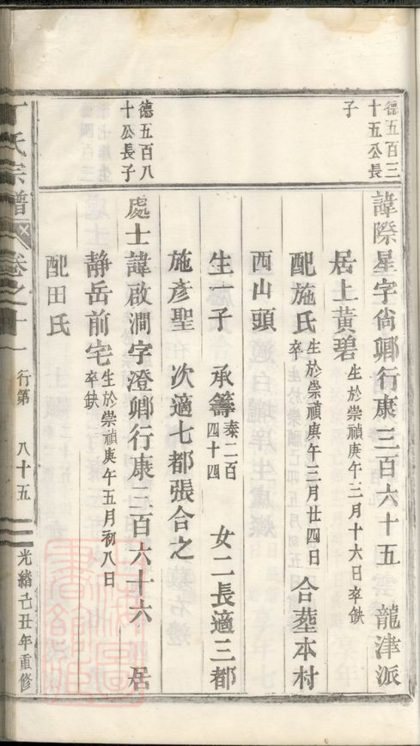 德五百三
十五公長
子
諱際星字尙卿行康三百六十五 龍津派
居上黃碧生於崇禎庚午三月十六日卒缺
配施氏生於崇禎庚午三月廿四日卒缺 合塟本村
西山頭
生一子 承籌泰二百四十四 女二長適三都
施彥聖 次適七都張合之
德五百八
十公長子
處士諱啟澗字澄卿行康三百六十六 居
靜岳前宅生於崇禎庚午五月初八日卒缺
配田氏
丁氏宗譜 卷之十一 行第 八十五 光緖己丑年重修